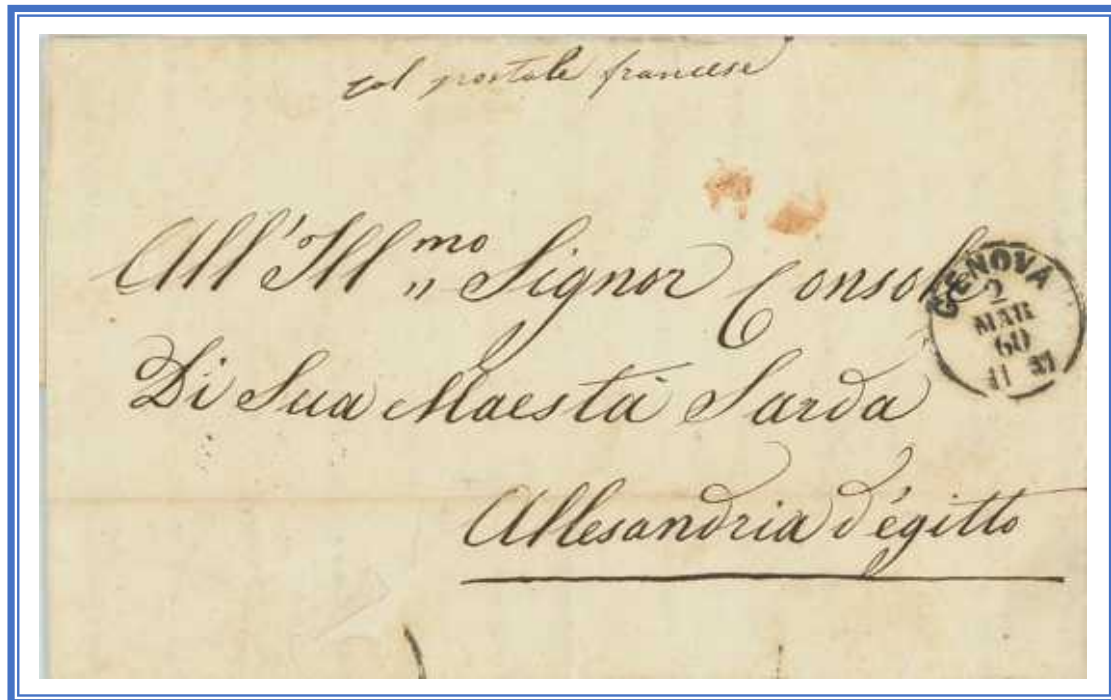 col postale francese
All'Ill.mo Signor Console
Di Sua Maestà Sarda
Allesandria d'égitto
GENOVA
2
MAR
60
11 M